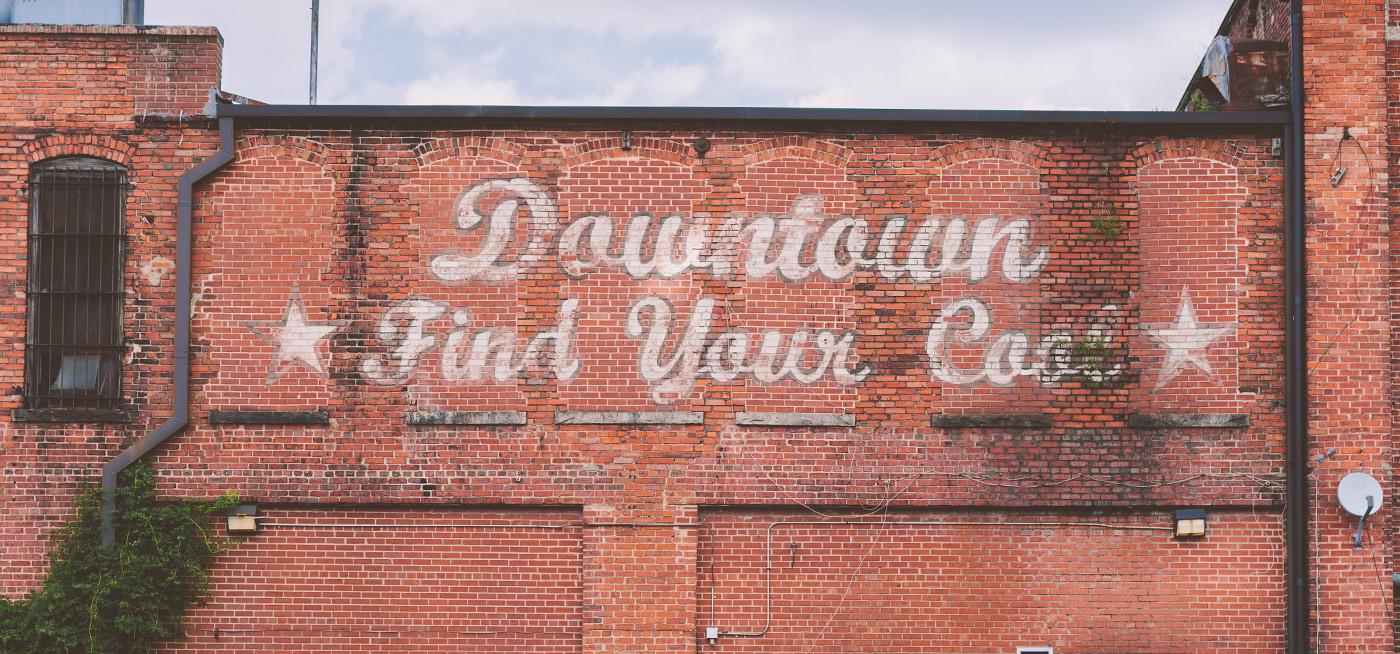 Downtown
Find Your Cool